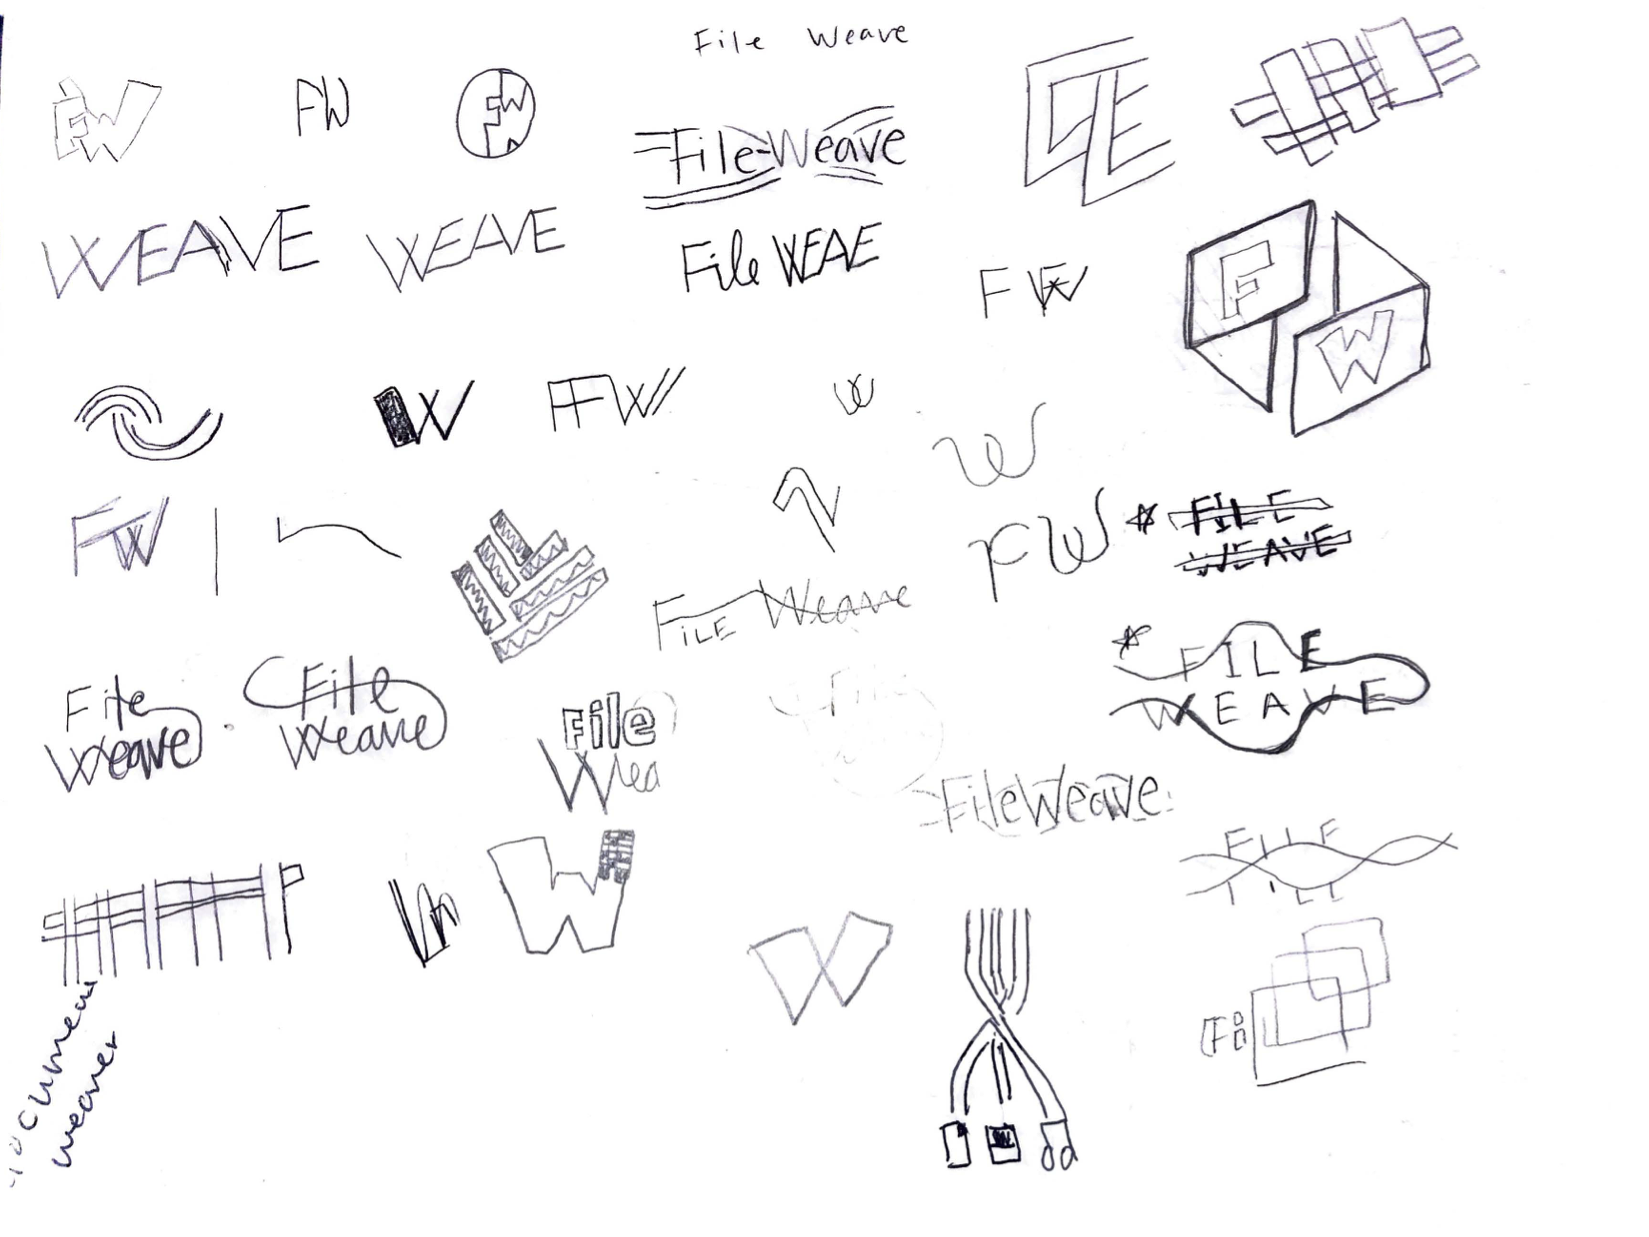 File Weave
FW
FW
FW
File-Weave
WEAVE
WEAVE
File WEAE
F W
F
W
W
FFW
W
W
FW
FW
FILE
WEAVE
File Weave
FILE
WEAVE
File
Weave
File
Weave
File
Wea
FileWeave
FILE
W
W
Fi
weaver